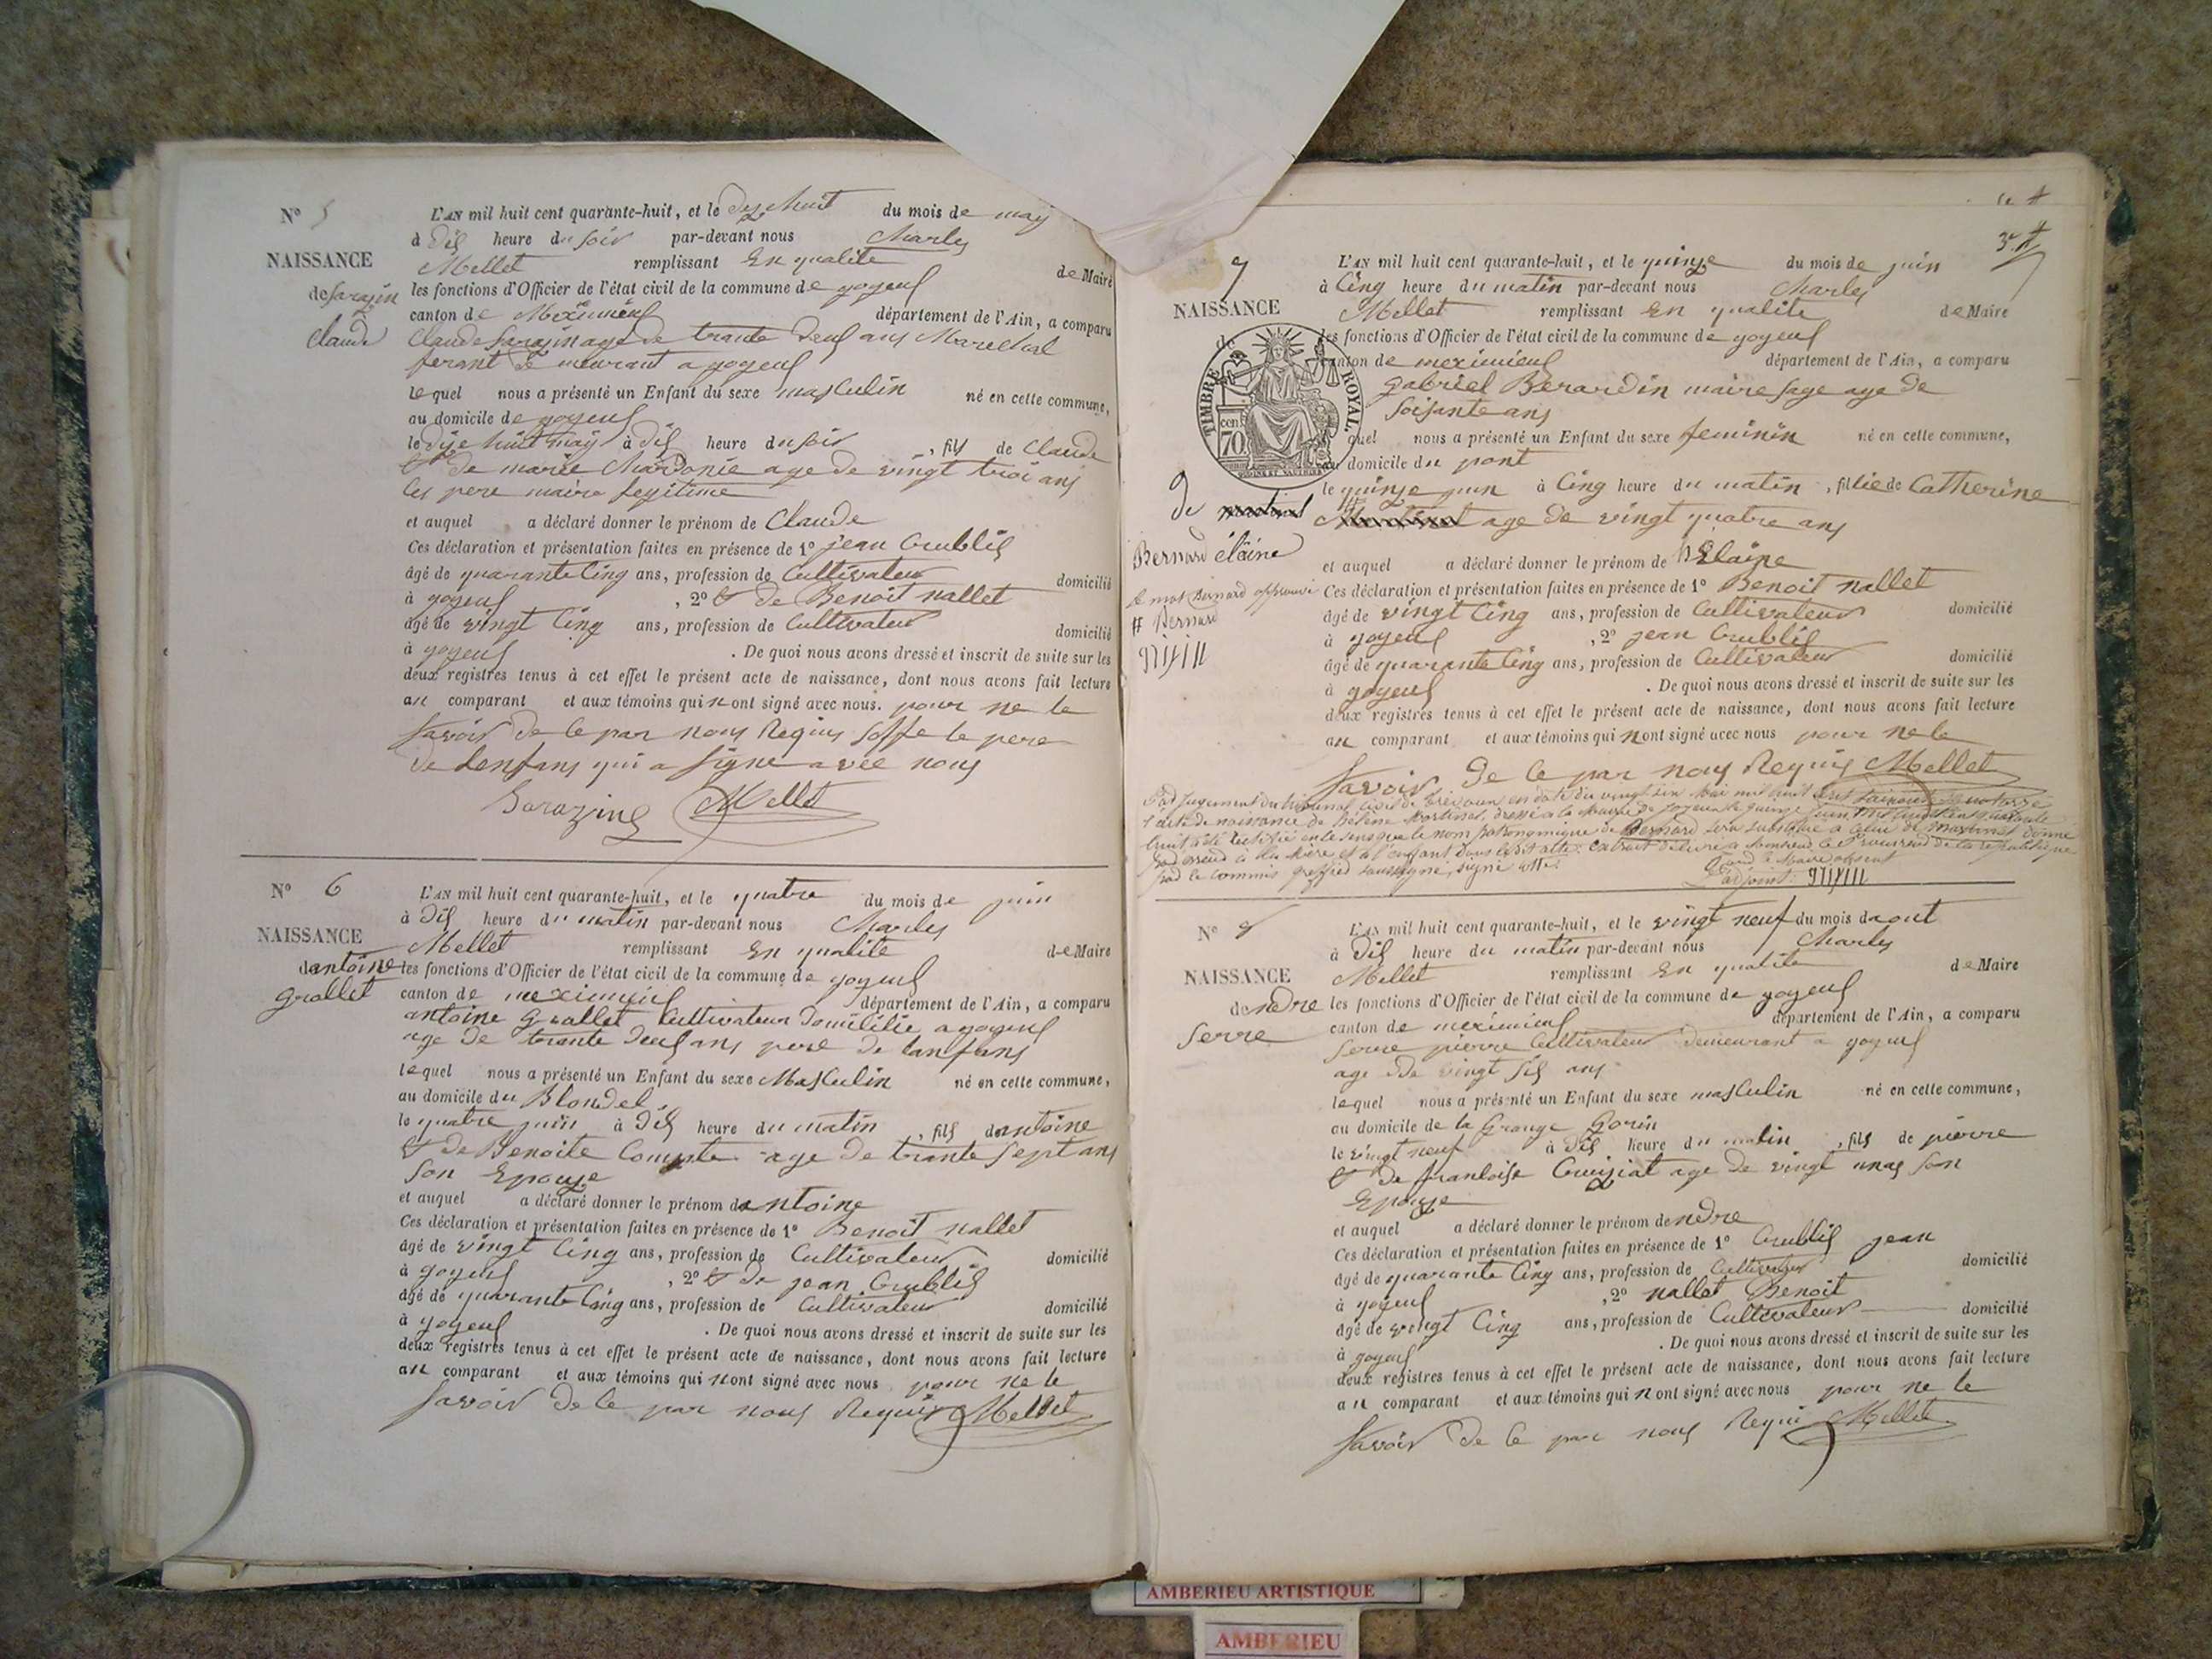 N° 5
NAISSANCE
de Sarazin
Claude
L'AN mil huit cent quarante-huit, et le dix huit du mois de may
à dix heure du soir par-devant nous Charles
Mellet remplissant En qualite de Maire
les fonctions d'Officier de l'état civil de la commune de joyeux
canton de Meximieux département de l'Ain, a comparu
Claude Sarazin age de trante deux ans Marechal
ferant demeurant a joyeux
lequel nous a présenté un Enfant du sexe masculin né en cette commune,
au domicile de joyeux
le dixe huit may à dix heure du soir, fils de Claude
& de marie Chardonie age de vingt troi ans
les pere maire legitime
et auquel a déclaré donner le prénom de Claude
Ces déclaration et présentation faites en présence de 1° jean Crublix
âgé de quarante cinq ans, profession de Cultivateur domicilié
à joyeux, 2° & de Benoit nallet
âgé de vingt Cinq ans, profession de Cultivateur domicilié
à joyeux. De quoi nous avons dressé et inscrit de suite sur les
deux registres tenus à cet effet le présent acte de naissance, dont nous avons fait lecture
au comparant et aux témoins qui n'ont signé avec nous. pour ne le
savoir de ce par nous Requis le pere
de Lenfans qui a signe avec nous
Sarazin Mellet
N° 6
NAISSANCE
d'antoine
grallet
L'AN mil huit cent quarante-huit, et le quatre du mois de juin
à dix heure du matin par-devant nous Charles
Mellet remplissant En qualite de Maire
les fonctions d'Officier de l'état civil de la commune de joyeux
canton de meximieux département de l'Ain, a comparu
antoine Grallet Cultivateur domicilie a joyeux
age de trante deux ans pere de lanfans
lequel nous a présenté un Enfant du sexe Masculin né en cette commune,
au domicile du Blondel
le quatre juin à dix heure du matin, fils d'antoine
& de Benoite Compte age de trante sept ans
son Epouze
et auquel a déclaré donner le prénom d'antoine
Ces déclaration et présentation faites en présence de 1° Benoit nallet
âgé de vingt Cinq ans, profession de Cultivateur domicilié
à joyeux, 2° & de jean Crublix
âgé de quarante Cinq ans, profession de Cultivateur domicilié
à joyeux. De quoi nous avons dressé et inscrit de suite sur les
deux registres tenus à cet effet le présent acte de naissance, dont nous avons fait lecture
au comparant et aux témoins qui n'ont signé avec nous pour ne le
savoir de ce par nous Requis Mellet
7
NAISSANCE
de
TIMBRE ROYAL
70 cen.
de
Bernard élaine
le mot Bernard approuvé
# Bernard
L'AN mil huit cent quarante-huit, et le quinze du mois de juin
à Cinq heure du matin par-devant nous Charles
Mellet remplissant En qualite de Maire
les fonctions d'Officier de l'état civil de la commune de joyeux
canton de meximieux département de l'Ain, a comparu
gabriel Berardin maire sage age de
soisante ans
quel nous a présenté un Enfant du sexe feminin né en cette commune,
au domicile du pont
le quinze juin à Cinq heure du matin, fillie de Catherine
age de vingt quatre ans
et auquel a déclaré donner le prénom de Elaine
Ces déclaration et présentation faites en présence de 1° Benoit nallet
âgé de vingt Cinq ans, profession de Cultivateur domicilié
à joyeux, 2° jean Crublix
âgé de quarante Cinq ans, profession de Cultivateur domicilié
à joyeux. De quoi nous avons dressé et inscrit de suite sur les
deux registres tenus à cet effet le présent acte de naissance, dont nous avons fait lecture
au comparant et aux témoins qui n'ont signé avec nous pour ne le
savoir de ce par nous Requis Mellet
Par jugement du tribunal civil de Trévoux en date du vingt six Mai mil huit cent soixante quatorze
l'acte de naissance de Hélène Martinet dressé à la Mairie de Joyeux le quinze juin mil huit cent quarante
huit a été rectifié en ce sens que le nom patronymique de Bernard sera substitué à celui de Martinet donné
par erreur à la Mère et à l'enfant dans ledit acte. Extrait délivré à Monsieur le Procureur de la république
par le Commis greffier soussigné, signé
Pour le Maire absent
L'adjoint
N° 8
NAISSANCE
d'endre
Serre
L'AN mil huit cent quarante-huit, et le vingt neuf du mois d'aout
à Dix heure du matin par-devant nous Charles
Mellet remplissant En qualite de Maire
les fonctions d'Officier de l'état civil de la commune de joyeux
canton de meximieux département de l'Ain, a comparu
Serre pierre Cultivateur demeurant a joyeux
age de vingt six ans
lequel nous a présenté un Enfant du sexe masculin né en cette commune,
au domicile de la Grange Gorin
le vingt neuf à dix heure du matin, fils de pierre
& de francoise Cruiziat age de vingt unas son
Epouze
et auquel a déclaré donner le prénom d'endre
Ces déclaration et présentation faites en présence de 1° Crublix jean
âgé de quarante Cinq ans, profession de Cultivateur domicilié
à joyeux, 2° nallet Benoit
âgé de vingt Cinq ans, profession de Cultivateur domicilié
à joyeux. De quoi nous avons dressé et inscrit de suite sur les
deux registres tenus à cet effet le présent acte de naissance, dont nous avons fait lecture
au comparant et aux témoins qui n'ont signé avec nous pour ne le
savoir de ce par nous Requi Mellet
AMBERIEU ARTISTIQUE
AMBERIEU